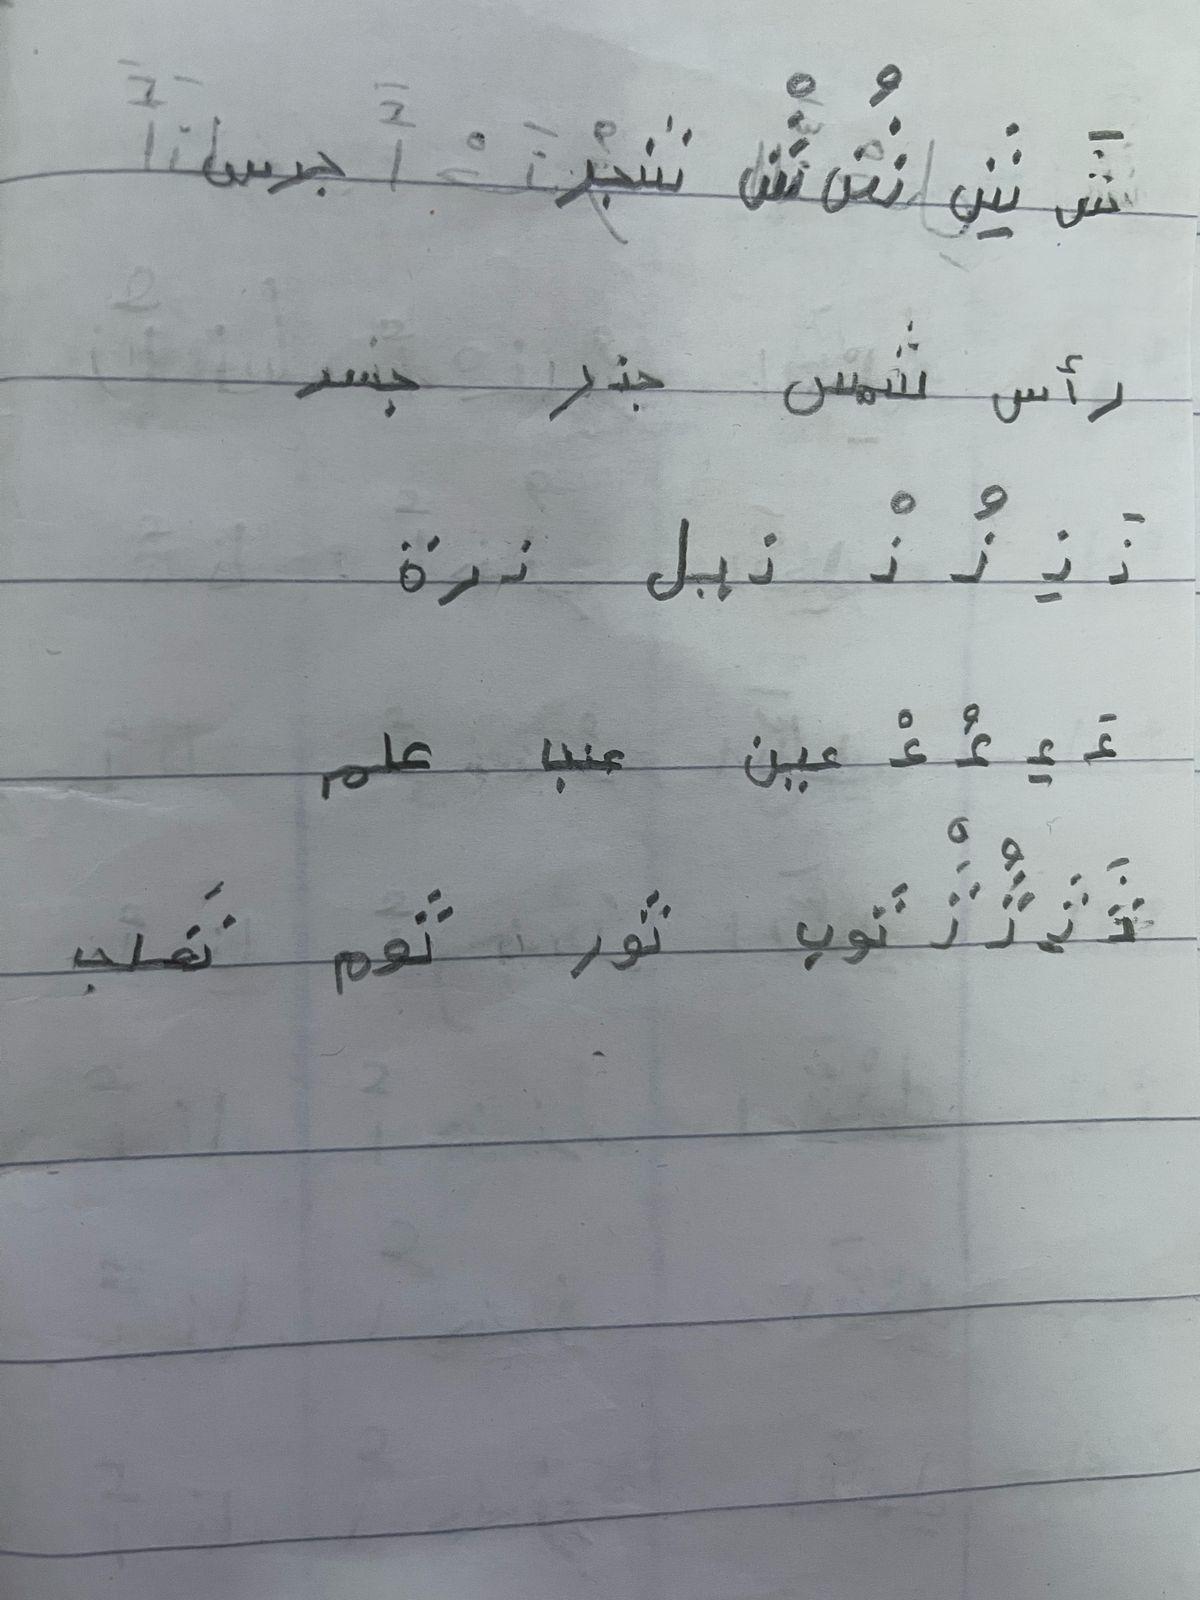 شَ شِ شُ شْ شجر جرس
رأس شمس جذر جسر
ذَ ذِ ذُ ذْ ذيل ذرة
عَ عِ عُ عْ عين عنب علم
ثَ ثِ ثُ ثْ ثوب ثور ثوم ثعلب